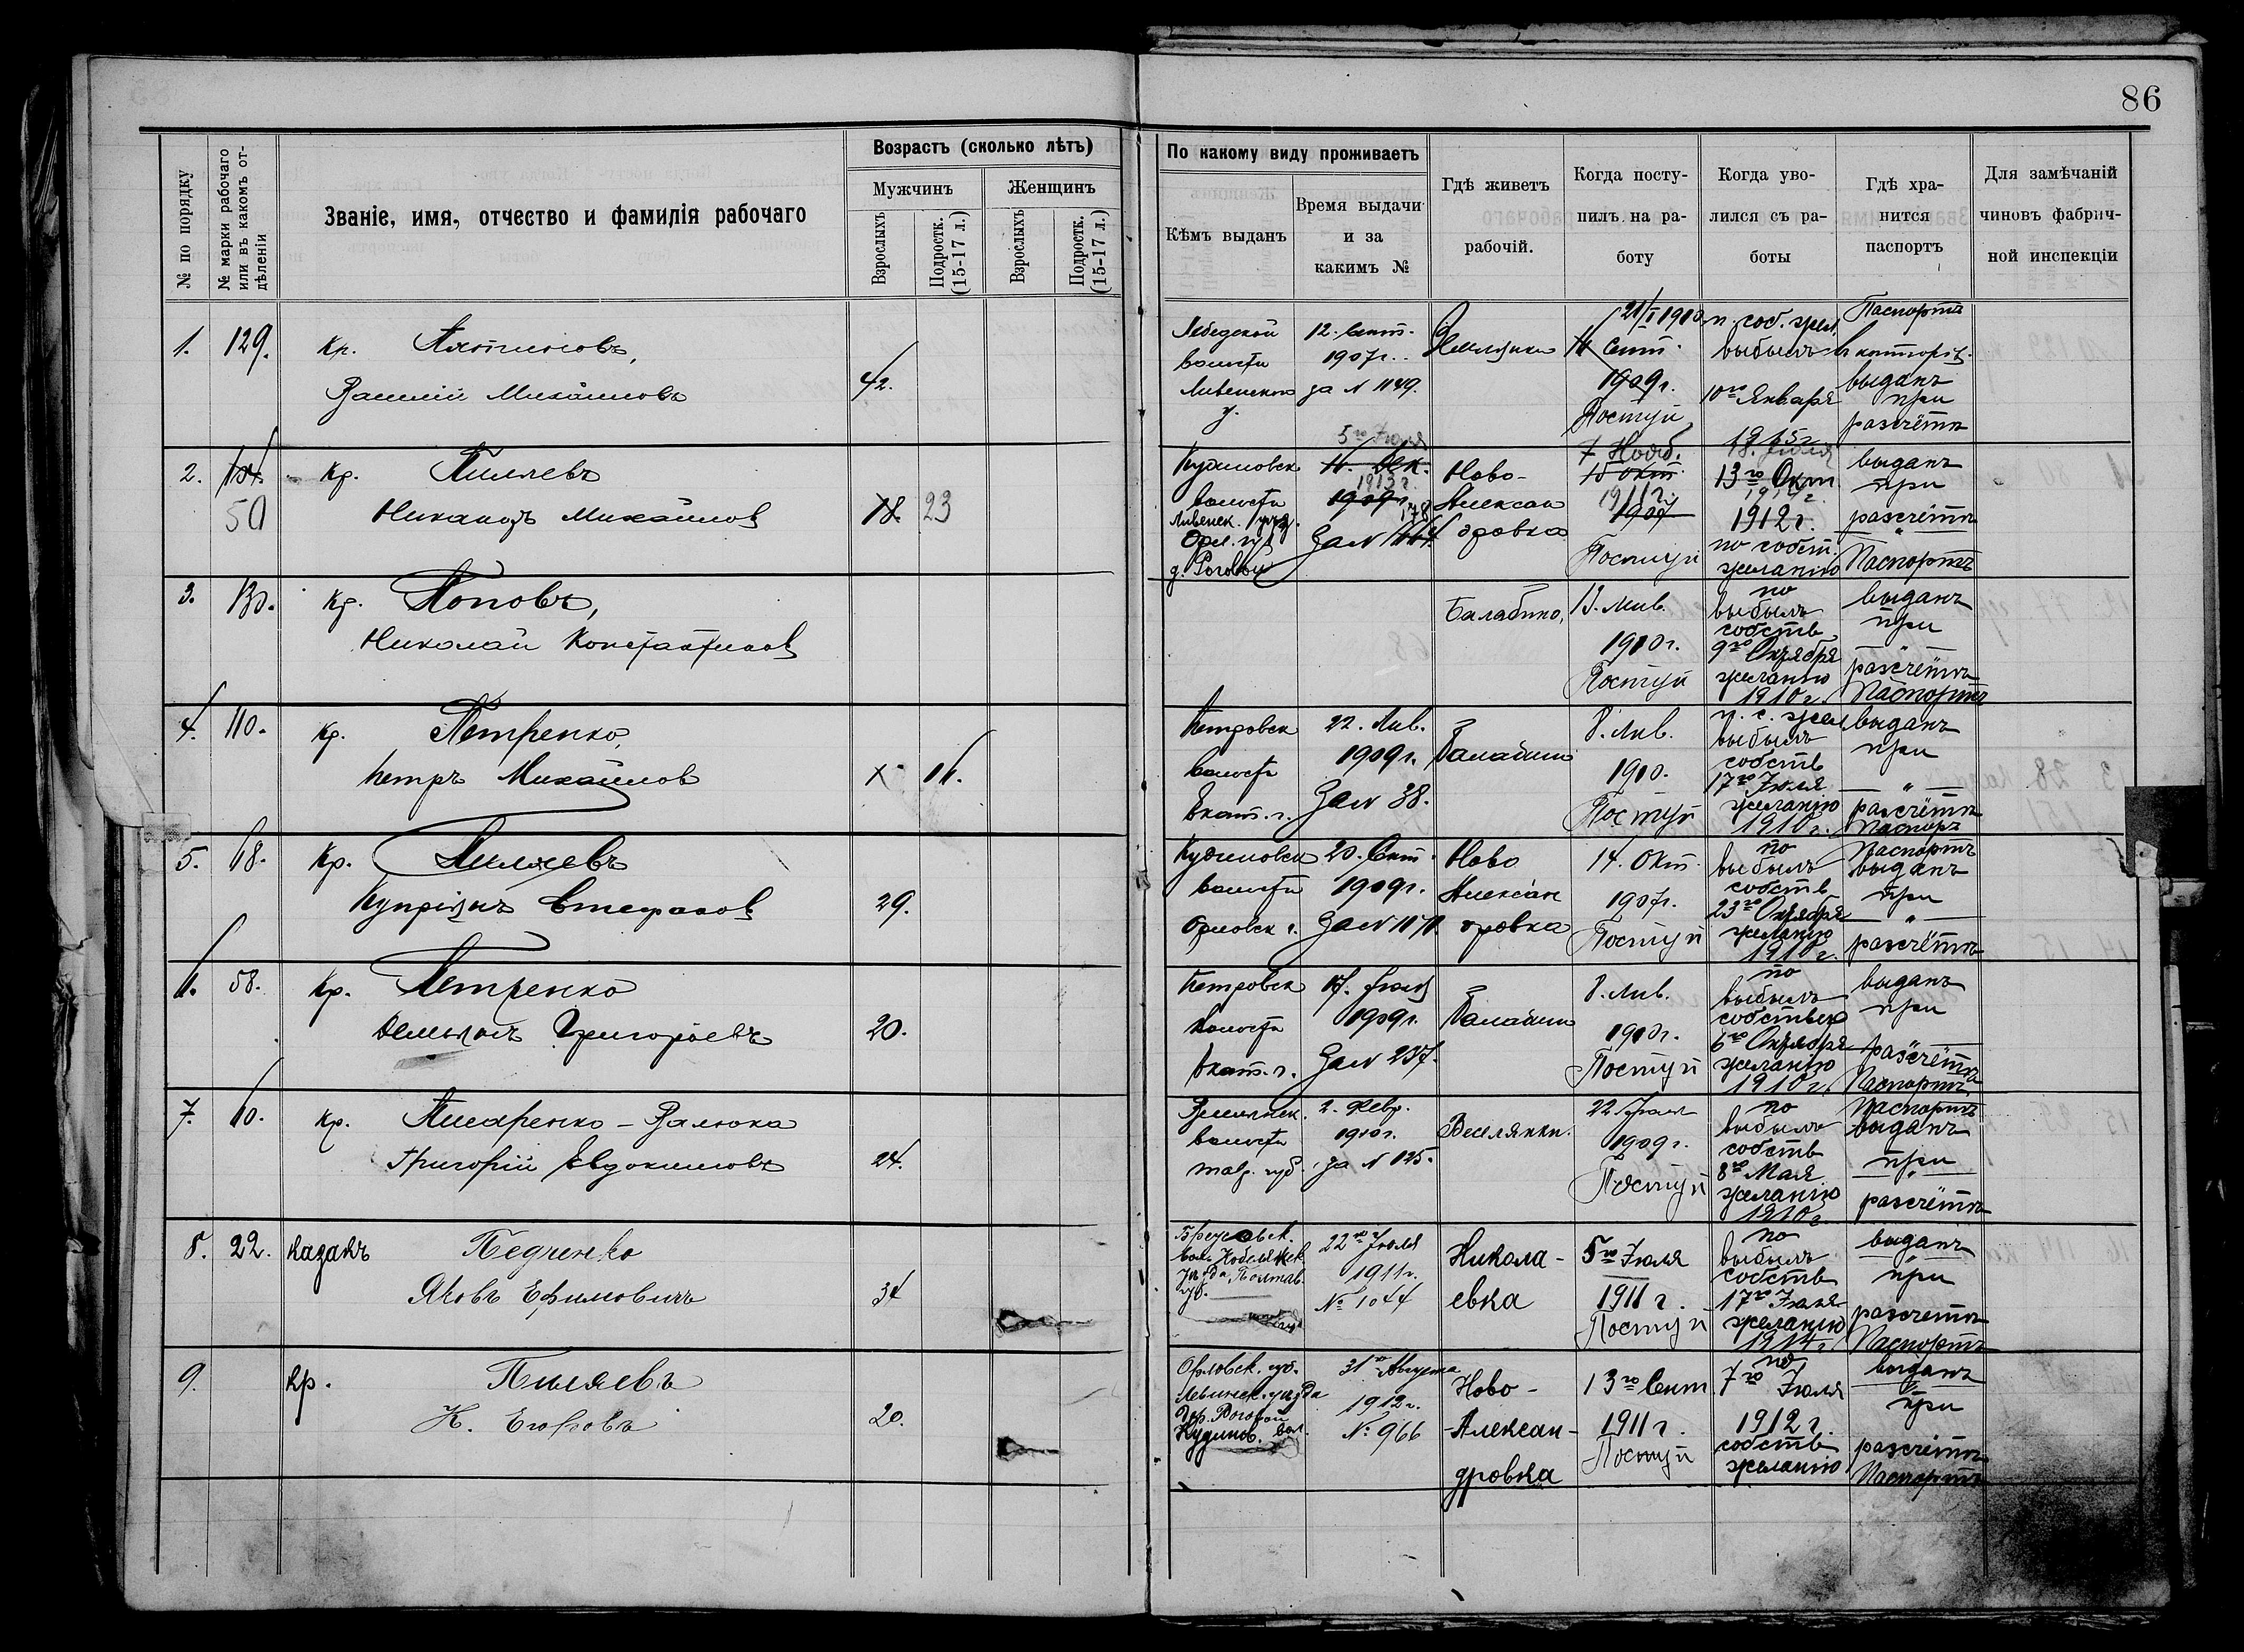 86
№ по порядку
№ марки рабочаго или въ какомъ отдѣленіи
Званіе, имя, отчество и фамилія рабочаго
Возрастъ (сколько лѣтъ)
Мужчинъ
Женщинъ
Взрослыхъ
Подростк. (15-17 л.)
Взрослыхъ
Подростк. (15-17 л.)
По какому виду проживаетъ
Кѣмъ выданъ
Время выдачи и за какимъ №
Гдѣ живетъ рабочій.
Когда поступилъ на работу
Когда уволился съ работы
Гдѣ хранится паспортъ
Для замѣчаній чиновъ фабричной инспекціи
1. 129. Кр.
Михайловъ 42.
волости
Ливенского
у.
12. Сент.
1907 г.
за № 1149.
21/I 1910
Сент.
1909 г.
Поступ
п. соб. жел.
выбылъ
10го Января
1915 г.
Паспортъ
въ конторѣ
выданъ
при
расчётѣ
2. 50 Кр. Пиляевъ
Михайлов 18. 23
Кудиновск
волости
Ливенск. уѣз.
Орл. губ
д. Роговой
5го Іюля
11. Дек.
1913 г.
1909 г.
178
Ново-
Алексан
дровка
7 Нояб.
15 Окт.
1911 г.
1907
Поступ
13го Окт
1912 г.
по собст.
желанію
выданъ
при
расчётѣ
Паспортъ
3. 130. Кр. Поповъ,
Николай Константинов
Балабино,
13. Янв.
1910 г.
Поступ
по
выбылъ
собств
9го Октября
желанію
1910 г.
выданъ
при
расчётѣ
Паспортъ
4. 110. Кр. Петренко,
Петръ Михайлов 16.
Петровск
волости
Екат. г.
22. Янв.
1909 г.
За № 38.
Балабино
8. Янв.
1910.
Поступ
п. с. жел
выбылъ
собств
17го Іюля
желанію
1910 г.
выданъ
при
расчётѣ
Паспорт
5. 68. Кр. Пиляевъ
Стефанов 29.
Кудиновск
волости
Орловск г.
20. Сент.
1909 г.
Ново
Алексан
дровка
14. Окт.
1907 г.
Поступ
по
выбылъ
собств
23го Октября
желанію
1910 г.
Паспортъ
выданъ
при
расчётѣ
6. 58. Кр. Петренко
Демьянъ Григорьевъ 20.
Петровск
волости
Екат. г.
17. Іюля
1909 г.
За № 237.
Балабино
8. Янв.
1910 г.
Поступ
по
выбылъ
собствен
6го Октября
желанію
1910 г.
выданъ
при
расчётѣ
Паспортъ
7. 60. Кр. Писаренко - Валюха
Григорій Евдокимовъ 24.
волости
Тав. губ.
2. Февр.
1910 г.
за № 125.
Веселянки.
22
1909 г.
Поступ
по
выбылъ
собств
8го Мая
желанію
1910 г.
Паспортъ
выданъ
при
расчётѣ
8. 22. казакъ Педченко
Яковъ Ефимовичъ 34
вол. Кобелякск.
уѣзда, Полтав.
губ.
22го Іюля
1911 г.
№ 1044
Никола-
евка
5го Іюля
1911 г.
Поступ
по
выбылъ
собств
17го Іюля
желанію
1914 г.
выданъ
при
расчетѣ
Паспортъ
9. кр. Пиляевъ
Н. Егоровъ 20.
Орловск. губ.
Ливинск. уѣзда
дер. Роговой
Кудинов. вол.
31го Августа
1912 г.
№ 966
Ново-
-Алексан-
дровка
13го Сент
1911 г.
Поступ
по
7го Іюля
1912 г.
собств
желанію
выданъ
при
расчётѣ
Паспортъ